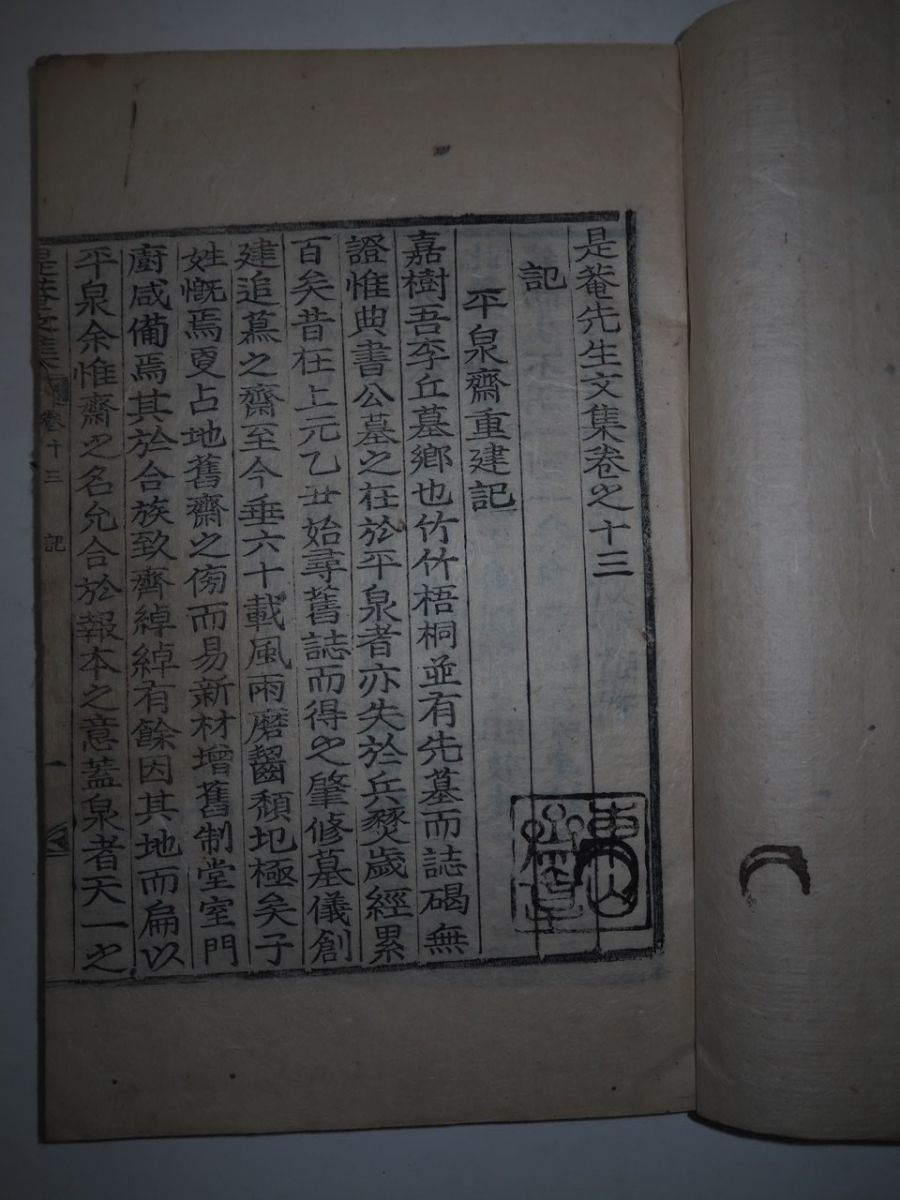 是菴先生文集卷之十三
記
平泉齋重建記
嘉樹吾李丘墓鄉也竹竹梧桐並有先墓而誌碣無
證惟典書公墓之在於平泉者亦失於兵燹歲經累
百矣昔在上元乙丑始尋舊誌而得之肇修墓儀創
建追慕之齋至今垂六十載風雨磨齧頹圮極矣子
姓慨焉更占地舊齋之傍而易新材增舊制堂室門
廚咸備焉其於合族致齊綽綽有餘因其地而扁以
平泉余惟齋之名允合於報本之意蓋泉者天一之
是菴文集 卷十三 記 一